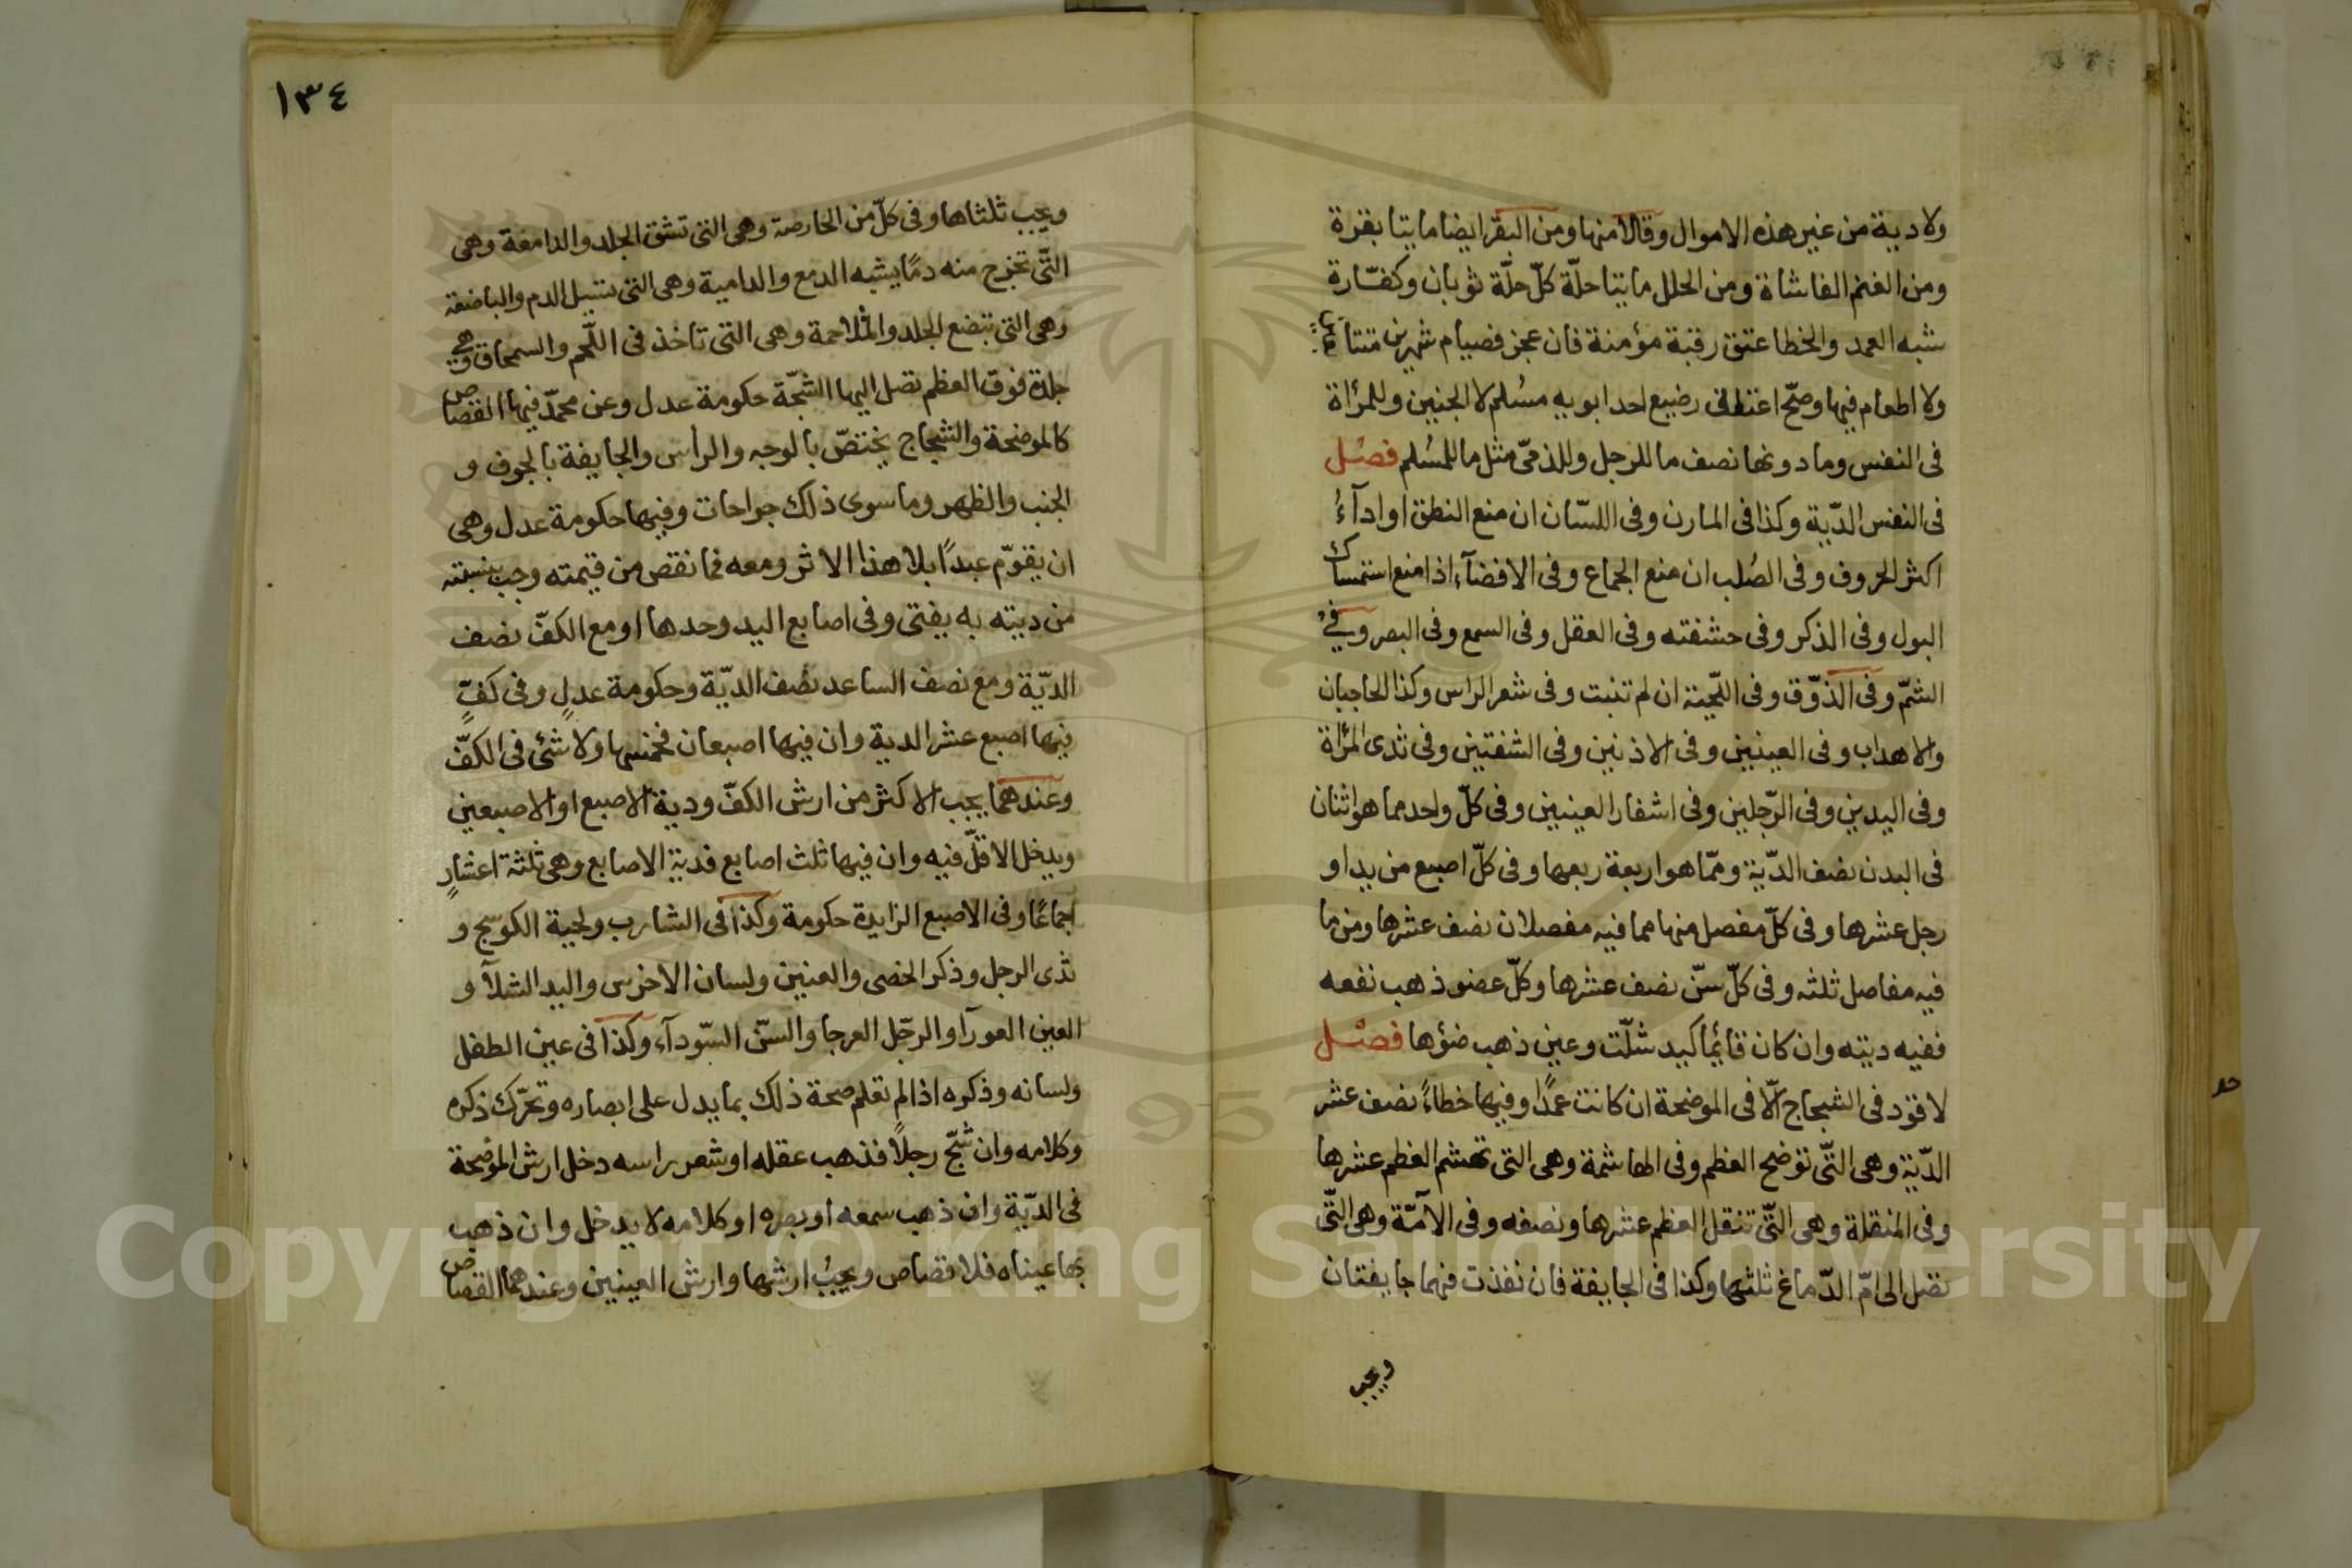 ولا دية من غير هذه الاموال وقالا منها ومن البقر ايضا مايتا بقرة
ومن الغنم الفا شاة ومن الحلل مايتا حلّة كلّ حلّة ثوبان وكفّارة
شبه العمد والخطا عتق رقبة مؤمنة فان عجز فصيام شهرين متتابعين
ولا اطعام فيها وصحّ اعتاق رضيع احد ابويه مسُلم لا الجنين وللمرأة
فى النفس وما دونها نصف ما للرجل وللذمىّ مثل ما للمسُلم فصل
فى النفس الدّية وكذا فى المارن وفى اللسّان ان منع النطق او ادآءُ
اكثر الحروف وفى الصُلب ان منع الجماع وفى الافضآء اذا منع استمساك
البول وفى الذكر وفى حشفته وفى العقل وفى السمع وفى البصر وفى
الشمّ وفى الذوّق وفى اللّحية ان لم تنبت وفى شعر الراس وكذا الحاجبان
والاهداب وفى العينين وفى الاذنين وفى الشفتين وفى ثدى المرأة
وفى اليدين وفى الرّجلين وفى اشفار العينين وفى كلّ واحد مما هو اثنان
فى البدن نصف الدّية وممّا هو اربعة ربعها وفى كلّ اصبع من يد او
رجل عشرها وفى كلّ مفصل منها مما فيه مفصلان نصف عشرها ومن ما
فيه مفاصل ثلثه وفى كلّ سّن نصف عشرها وكلّ عضو ذهب نفعه
ففيه ديته وان كان قائما كيد شلّت وعين ذهب ضؤها فصل
لا قود فى الشجاج الّا فى الموضحة ان كانت عمدًا وفيها خطاءً نصف عشر
الدّية وهى التّى توضح العظم وفى الهاشمة وهى التى تهشم العظم عشرها
وفى المنقلة وهى التّى تنقل العظم عشرها ونصفه وفى الآمّة وهى التّى
تصل الى امّ الدّماغ ثلثها وكذا فى الجايفة فان نفذت فهما جايفتان
ويجب
١٣٤
ويجب ثلثاها وفى كلّ من الحارصة وهى التى تشق الجلد والدامعة وهى
التّى تخرج منه دمًا يشبه الدمع والدامية وهى التى تسيل الدم والباضعة
وهى التى تبضع الجلد والمثلاحمة وهى التى تاخذ فى اللّحم والسمحاق وهى
جلدة فوق العظم تصل اليها الشجّة حكومة عدل وعن محمدّ فيها القصاص
كالموضحة والشجاج يختصّ بالوجه والرأس والجايفة بالجوف و
الجنب والظهر وما سوى ذلك جراحات وفيها حكومة عدل وهى
ان يقوّم عبدًا بلا هذا الاثر ومعه فما نقص من قيمته وجب بنسبته
من ديته به يفتى وفى اصابع اليد وحدها او مع الكفّ نصف
الديّة ومع نصف الساعد نصف الديّة وحكومة عدلٍ وفى كفّ
فيها اصبع عشر الدية وان فيها اصبعان فخمسها ولا شئ فى الكفّ
وعندهما يجب الاكثر من ارش الكفّ ودية الاصبع او الاصبعين
ويدخل الاقلّ فيه وان فيها ثلث اصابع فدية الاصابع وهى ثلثة اعشارٍ
اجماعًا وفى الاصبع الزايدة حكومة وكذا فى الشارب ولحية الكوسج و
ثدى الرجل وذكر الخصى والعنين ولسان الاخرس واليد الشلآ و
العين العورآ والرجّل العرجا والسّن السّودآء وكذا فى عين الطفل
ولسانه وذكره اذا لم تعلم صحة ذلك بما يدل على ابصاره وتحرّك ذكره
وكلامه وان شجّ رجلًا فذهب عقله او شعر راسه دخل ارش الموضحة
فى الديّة وان ذهب سمعه او بصره او كلامه لا يدخل وان ذهب
بها عيناه فلا قصاص ويجبُ ارشها وارش العينين وعندهما القصاص
Copyright © King Saud University
1957